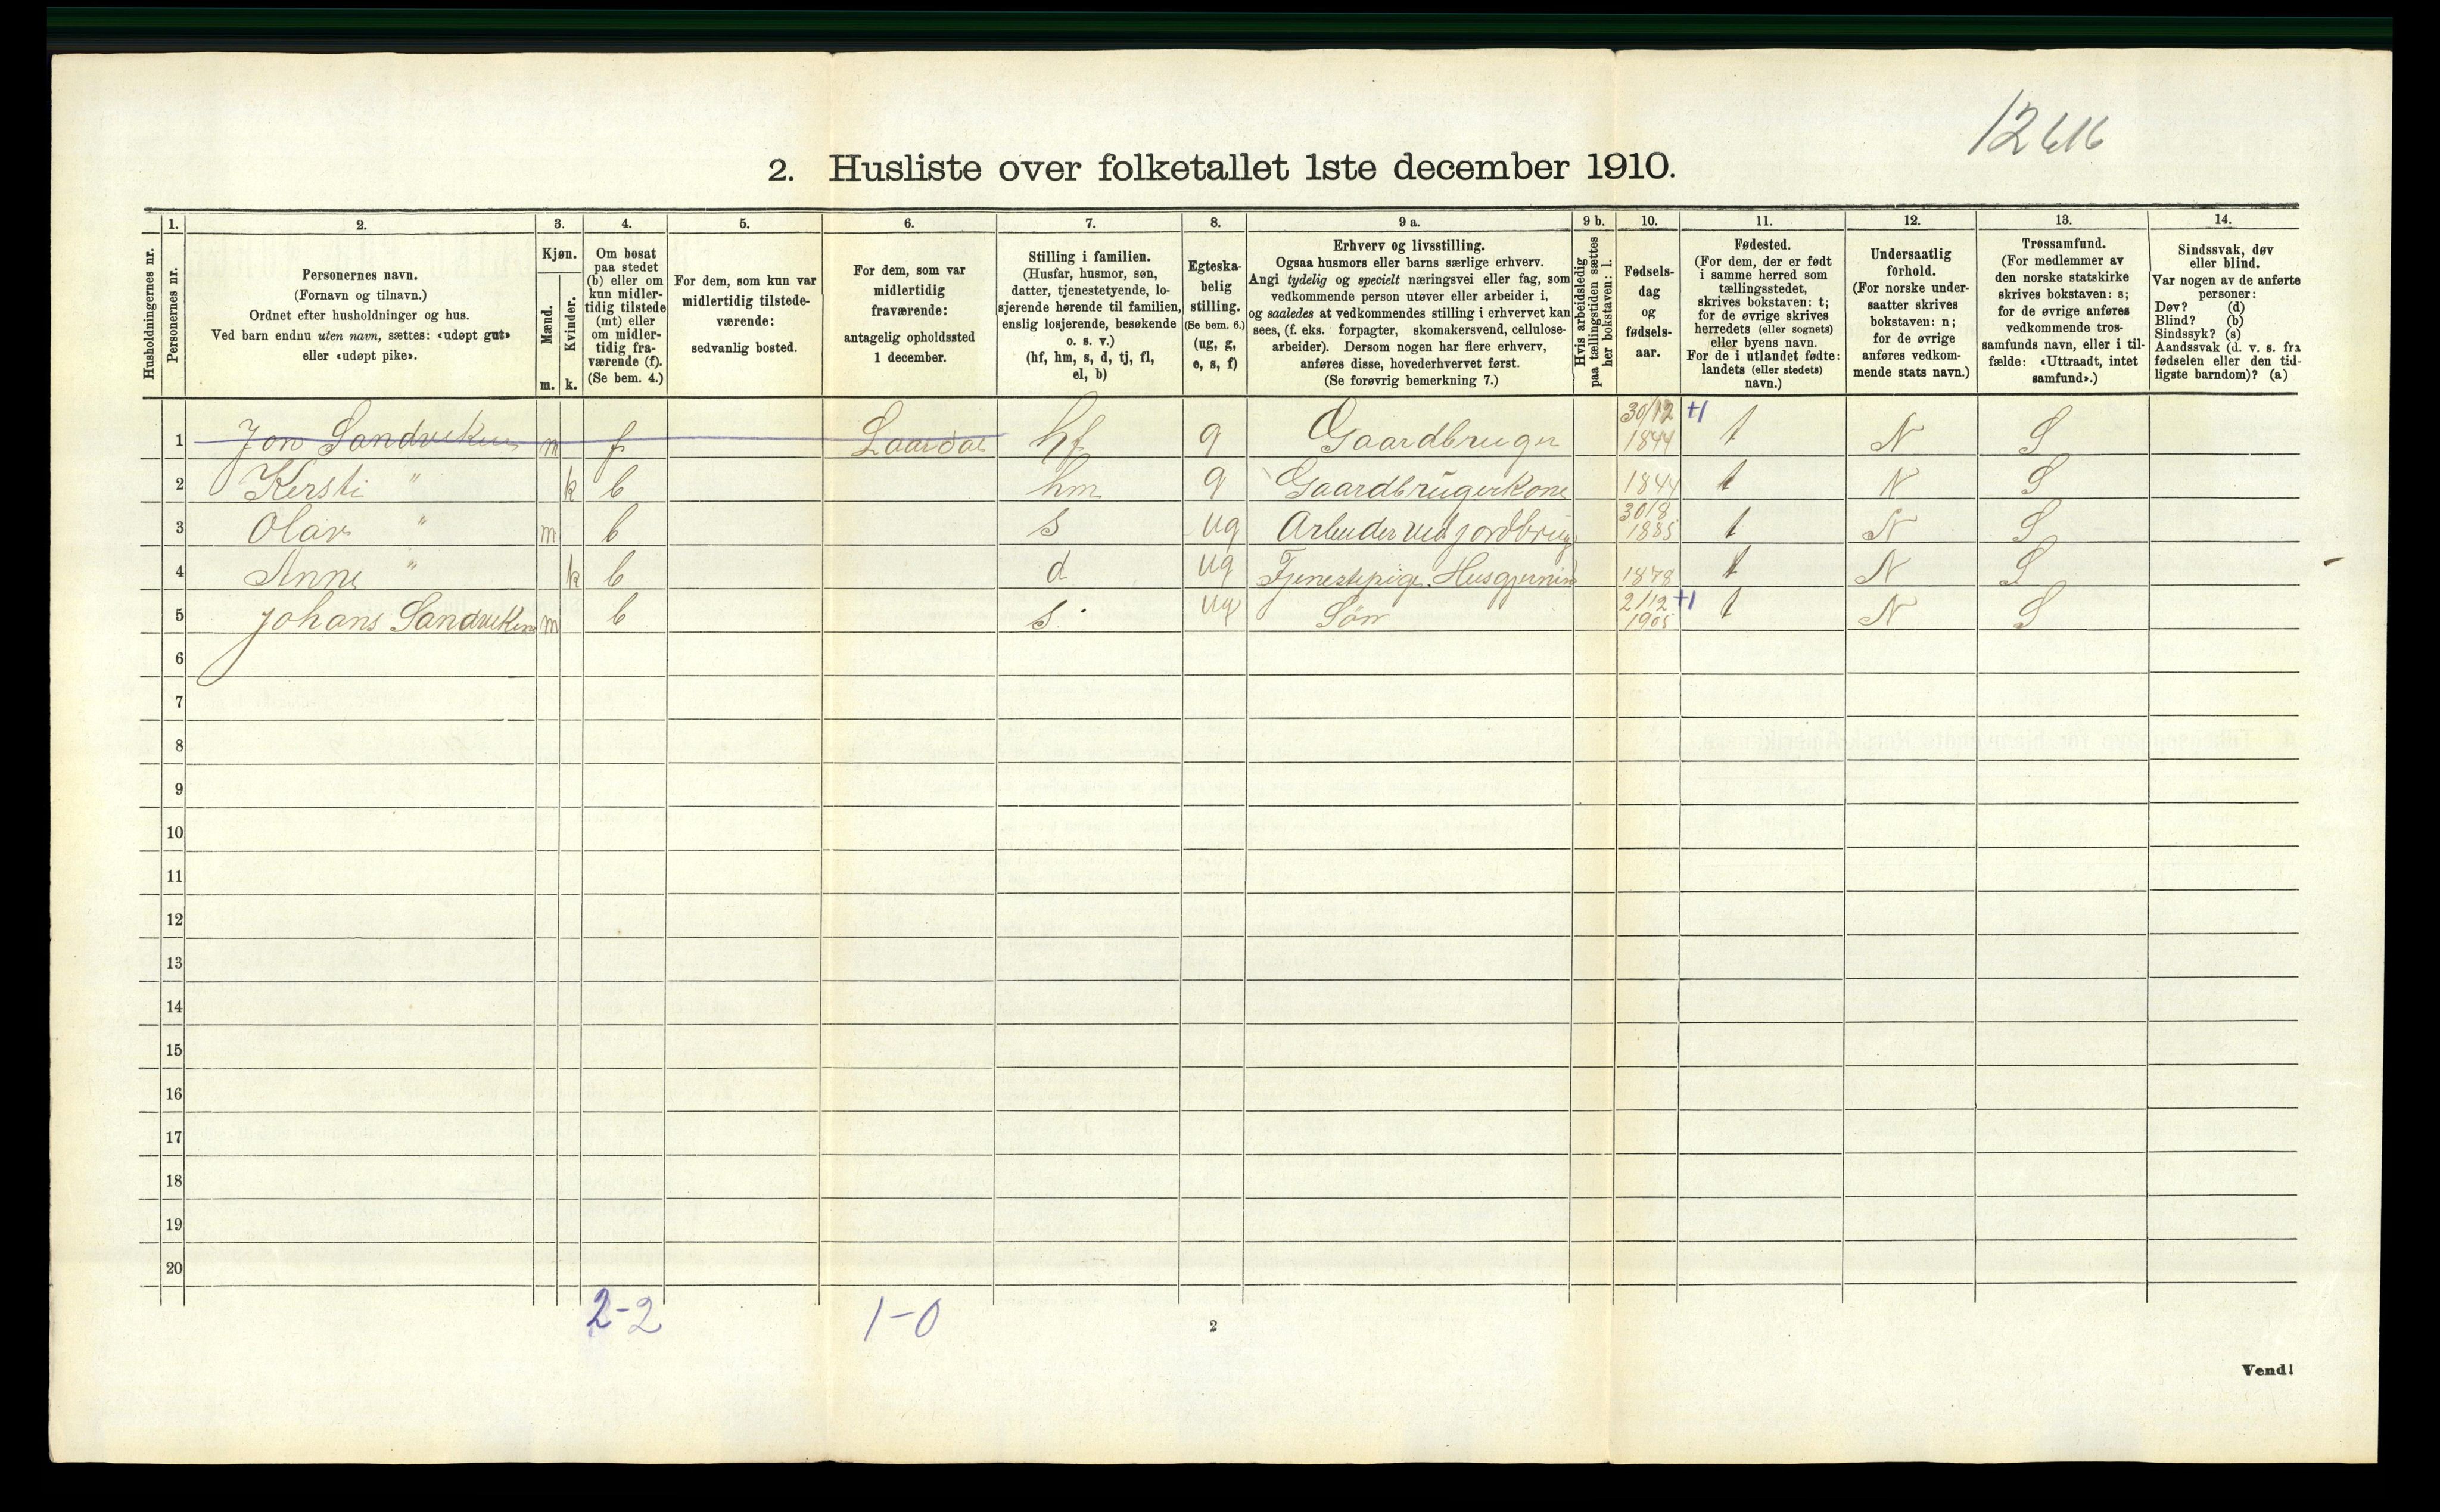 12616
2. Husliste over folketallet 1ste december 1910.
Husholdningernes nr.
1. Personernes nr.
2. Personernes navn.
(Fornavn og tilnavn.)
Ordnet efter husholdninger og hus.
Ved barn endnu uten navn, sættes: «udøpt gut»
eller «udøpt pike».
3. Kjøn.
Mænd. m.
Kvinder. k.
4. Om bosat
paa stedet
(b) eller om
kun midler-
tidig tilstede
(mt) eller
om midler-
tidig fra-
værende (f).
(Se bem. 4.)
5. For dem, som kun var
midlertidig tilstede-
værende:
sedvanlig bosted.
6. For dem, som var
midlertidig
fraværende:
antagelig opholdssted
1 december.
7. Stilling i familien.
(Husfar, husmor, søn,
datter, tjenestetyende, lo-
sjerende hørende til familien,
enslig losjerende, besøkende
o. s. v.)
(hf, hm, s, d, tj, fl,
el, b)
8. Egteska-
belig
stilling.
(Se bem. 6.)
(ug, g,
e, s, f)
9 a. Erhverv og livsstilling.
Ogsaa husmors eller barns særlige erhverv.
Angi tydelig og specielt næringsvei eller fag, som
vedkommende person utøver eller arbeider i,
og saaledes at vedkommendes stilling i erhvervet kan
sees, (f. eks. forpagter, skomakersvend, cellulose-
arbeider). Dersom nogen har flere erhverv,
anføres disse, hovederhvervet først.
(Se forøvrig bemerkning 7.)
9 b. Hvis arbeidsledig
paa tællingstiden sættes
her bokstaven: l.
10. Fødsels-
dag
og
fødsels-
aar.
11. Fødested.
(For dem, der er født
i samme herred som
tællingsstedet,
skrives bokstaven: t;
for de øvrige skrives
herredets (eller sognets)
eller byens navn.
For de i utlandet fødte:
landets (eller stedets)
navn.)
12. Undersaatlig
forhold.
(For norske under-
saatter skrives
bokstaven: n;
for de øvrige
anføres vedkom-
mende stats navn.)
13. Trossamfund.
(For medlemmer av
den norske statskirke
skrives bokstaven: s;
for de øvrige anføres
vedkommende tros-
samfunds navn, eller i til-
fælde: «Uttraadt, intet
samfund».)
14. Sindssvak, døv
eller blind.
Var nogen av de anførte
personer:
Døv? (d)
Blind? (b)
Sindssyk? (s)
Aandssvak (d. v. s. fra
fødselen eller den tid-
ligste barndom)? (a)
1 Jon Sandviken m f Laardal hf g Gaardbruger 30/12 1844 +1 t N S
2 Kersti " k b hm g Gaardbrugerkone 1844 t N S
3 Olav " m b s ug Arbeider ved jordbrug 30/8 1885 t N S
4 Anne " k b d ug Tjenestepige. Husgjerning 1878 t N S
5 Johans Sandviken m b s. ug Søn 2/12 1905 +1 t N S
6
7
8
9
10
11
12
13
14
15
16
17
18
19
20
2-2 1-0
2
Vend!